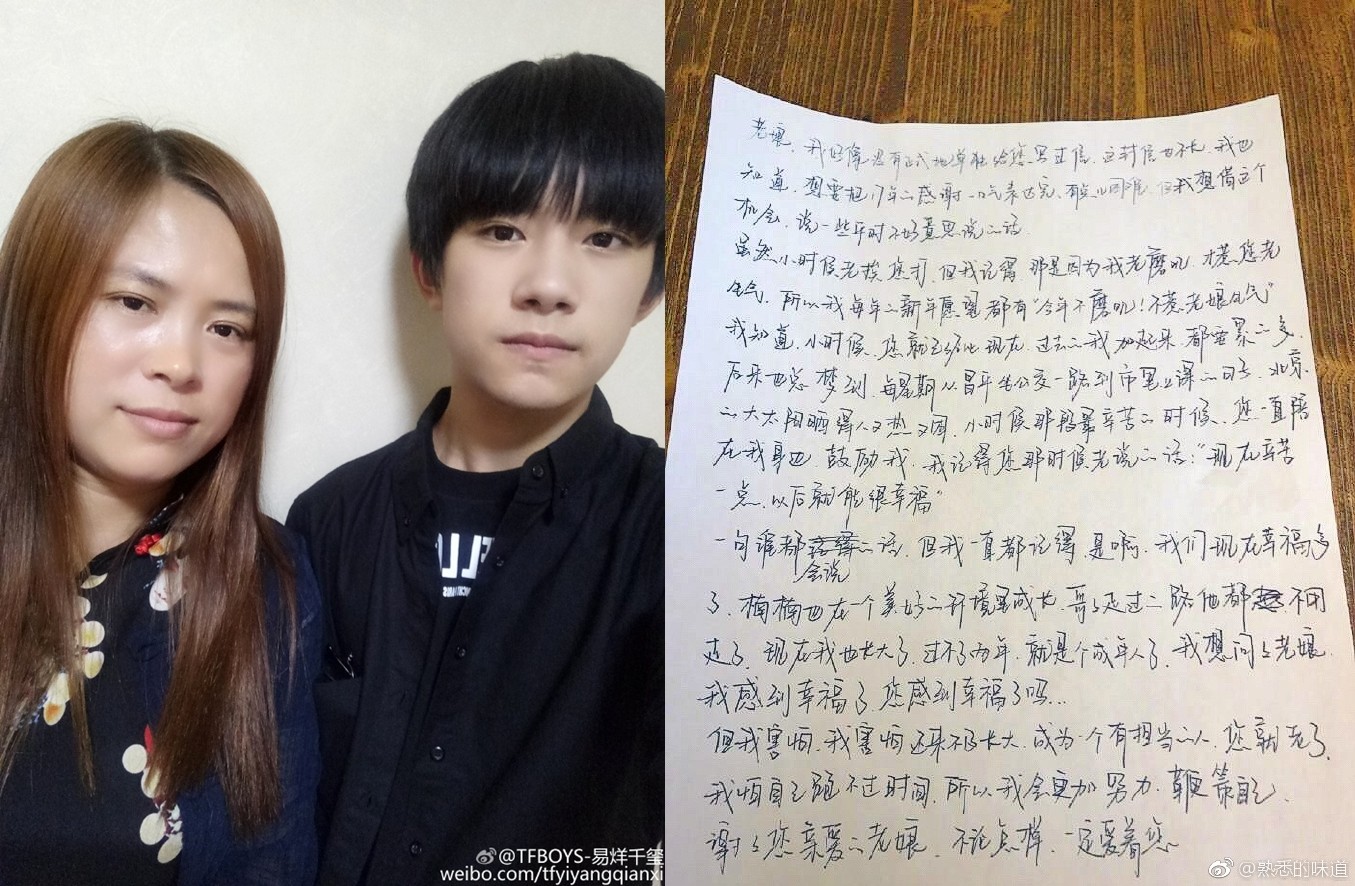 ELLO
@TFBOYS-易烊千玺
weibo.com/tfyiyangqianxi
老娘，我好像没有正式地单独给您写过信，这封信也不长，我也
知道，想要把17年的感谢一口气表达完，有点儿困难，但我想借这个
机会，说一些平时不好意思说的话
虽然小时候老挨您打，但我记得那是因为我老磨叽，才惹您老
生气，所以我每年的新年愿望都有“今年不磨叽！不惹老娘生气”
我知道，小时候，您就已经比现在，过去的我加起来都要累的多，
后来也总梦到，每星期从昌平坐公交一路到市里上课的日子，北京
的大太阳晒得人又热又困，小时候那段最辛苦的时候，您一直陪
在我身边，鼓励我，我记得您那时候老说的话：“现在辛苦
一点，以后就能很幸福”
一句谁都会说的话，但我一直都记得，是啊，我们现在幸福多
了，楠楠也在一个美好的环境里成长，哥哥走过的路他都不用
走了，现在我也长大了，过不了两年，就是个成年人了，我想问问老娘，
我感到幸福了，您感到幸福了吗...
但我害怕，我害怕还来不及长大，成为一个有担当的人，您就老了，
我怕自己跑不过时间，所以我会更加努力，鞭策自己，
谢谢您亲爱的老娘，不论怎样，一定爱着您
@熟悉的味道